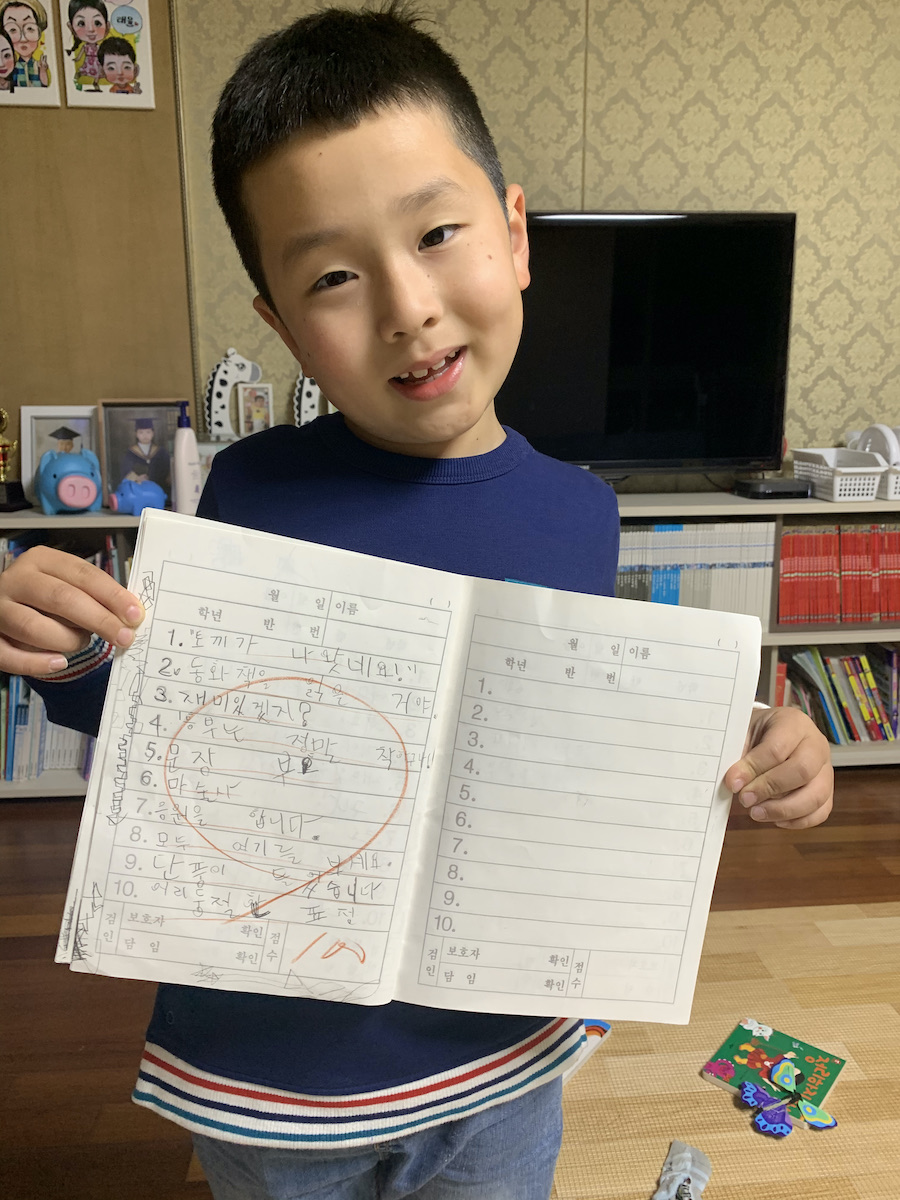 월 일 이름 ( )
학년 반 번
1. "토끼가 나왔네요!"
2. 동화책을 읽을 거야.
3. 재미있겠지?
4. 흥부는 정말
5. 문장 부호
6.
7. 응원을 합니다.
8. 모두 여기를 보세요.
9. 단풍이 들었습니다
10. 어리둥절한 표정
검인 보호자 확인 점수 100
담임 확인
월 일 이름 ( )
학년 반 번
1.
2.
3.
4.
5.
6.
7.
8.
9.
10.
검인 보호자 확인 점수
담임 확인